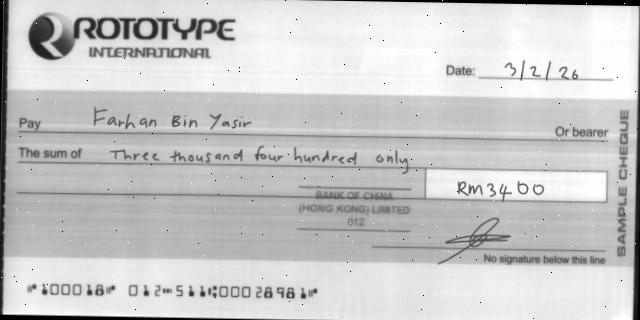 ROTOTYPE
INTERNATIONAL
Date: 3/2/26
Pay Farhan Bin Yasir Or bearer
The sum of Three thousand four hundred only
RM3400
BANK OF CHINA
(HONG KONG) LIMITED
012
No signature below this line
SAMPLE CHEQUE
⑈100018⑈ 012⑉511⑆00028981⑈